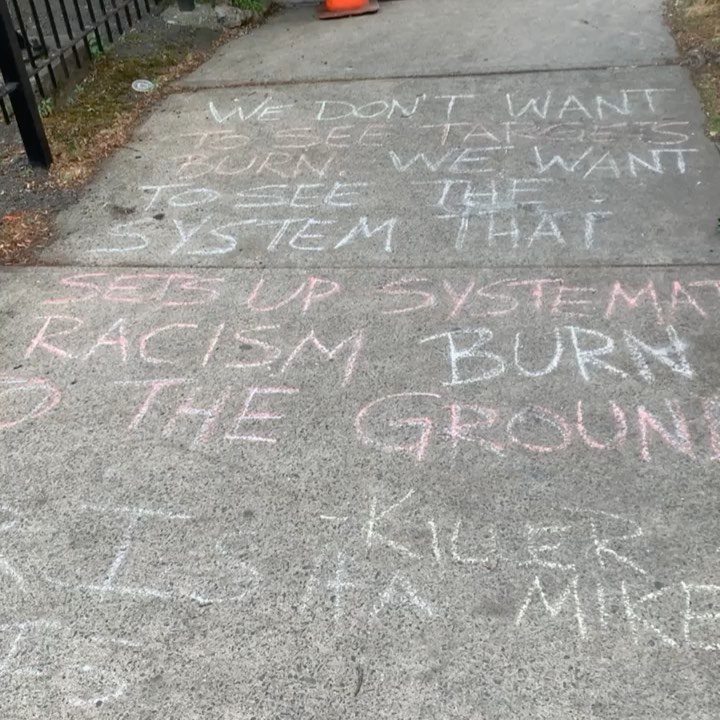 WE DON'T WANT
TO SEE TARGETS
BURN. WE WANT
TO SEE THE
SYSTEM THAT
SETS UP SYSTEMAT
RACISM BURN
O THE GROUND
-KILLER
MIKE